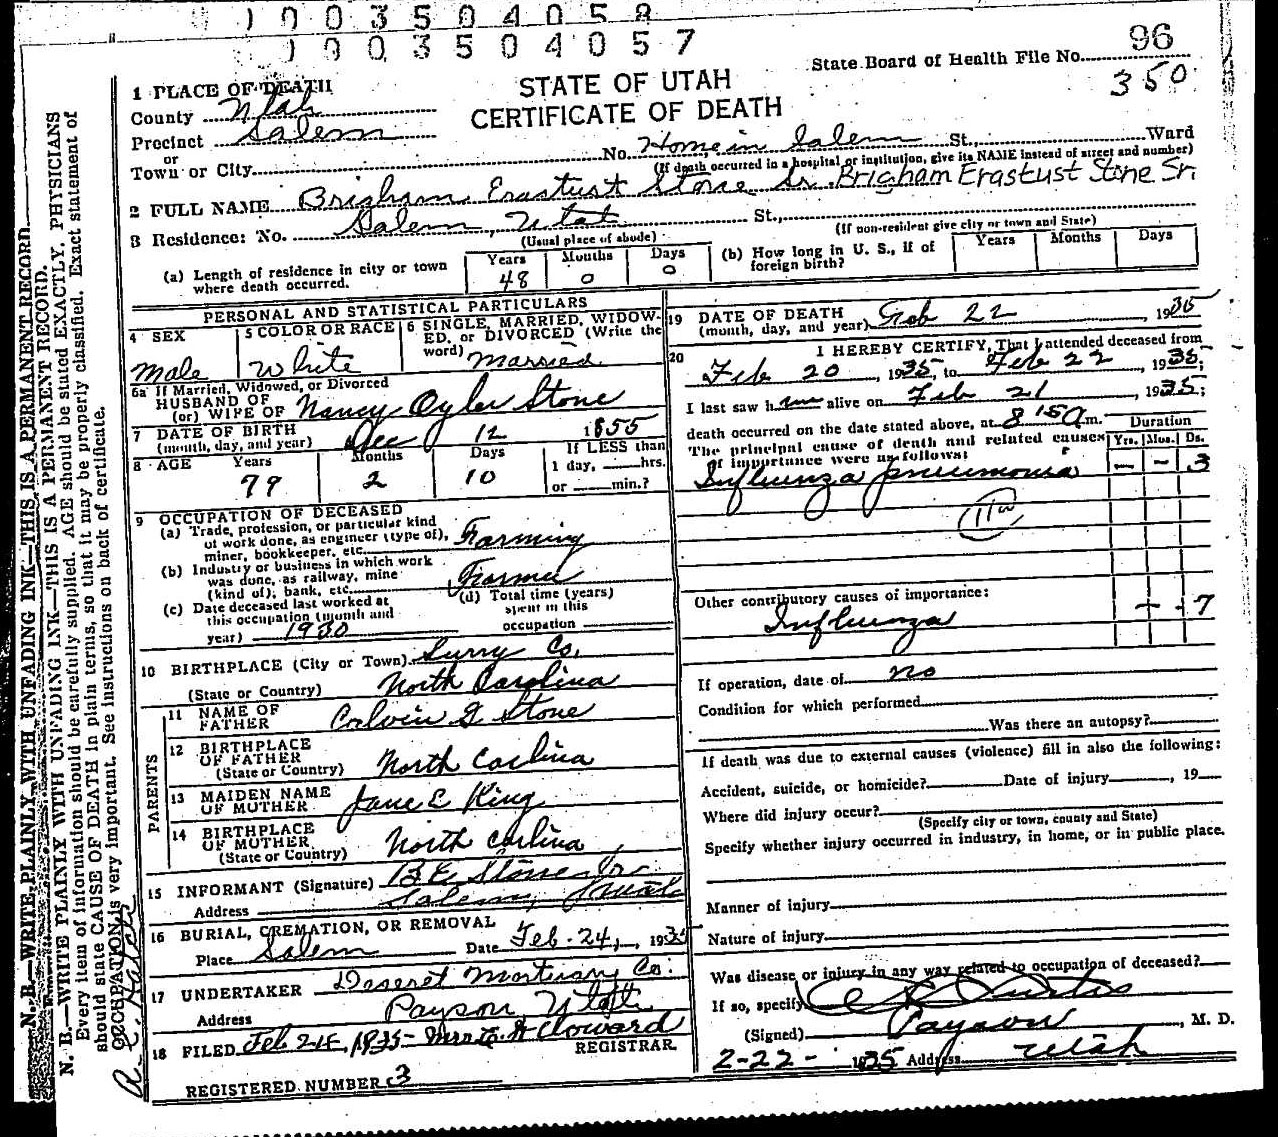 1003504058
1003504057
96
State Board of Health File No.
350
STATE OF UTAH
CERTIFICATE OF DEATH
1 PLACE OF DEATH
County Utah
Precinct Salem
or
Town or City No. Home in Salem St., Ward
(If death occurred in a hospital or institution, give its NAME instead of street and number)
2 FULL NAME Brigham Erastust Stone Sr. Brigham Erastust Stone Sr.
3 Residence: No. Salem, Utah St.,
(Usual place of abode) (If non-resident give city or town and State)
(a) Length of residence in city or town where death occurred. Years 48 Months 0 Days 0
(b) How long in U. S., if of foreign birth? Years Months Days
PERSONAL AND STATISTICAL PARTICULARS
4 SEX Male
5 COLOR OR RACE White
6 SINGLE, MARRIED, WIDOWED, or DIVORCED (Write the word) Married
6a If Married, Widowed, or Divorced
HUSBAND OF
(or) WIFE OF Nancy Oyler Stone
7 DATE OF BIRTH
(month, day, and year) Dec 12 1855
8 AGE Years 79 Months 2 Days 10 If LESS than 1 day, hrs. or min.?
9 OCCUPATION OF DECEASED
(a) Trade, profession, or particular kind of work done, as engineer (type of), miner, bookkeeper, etc. Farming
(b) Industry or business in which work was done, as railway, mine (kind of); bank, etc. Farmer
(c) Date deceased last worked at this occupation (month and year) 1930
(d) Total time (years) spent in this occupation
10 BIRTHPLACE (City or Town) Surry Co.
(State or Country) North Carolina
PARENTS
11 NAME OF FATHER Calvin G Stone
12 BIRTHPLACE OF FATHER
(State or Country) North Carlina
13 MAIDEN NAME OF MOTHER Jane E King
14 BIRTHPLACE OF MOTHER
(State or Country) North Carlina
15 INFORMANT (Signature) B E Stone Jr
Address Salem, Utah
16 BURIAL, CREMATION, OR REMOVAL
Place Salem Date Feb. 24, 1935
17 UNDERTAKER Deseret Mortuary Co.
Address Payson Utah
18 FILED Feb 24, 1935 Howard
REGISTRAR
REGISTERED NUMBER 3
19 DATE OF DEATH
(month, day, and year) Feb 22 1935
20 I HEREBY CERTIFY, That I attended deceased from
Feb 20, 1935, to Feb 22, 1935;
I last saw him alive on Feb 21, 1935;
death occurred on the date stated above, at 8:50 a m.
The principal cause of death and related causes of importance were as follows:
Duration
Yrs. Mos. Ds.
Influenza pneumonia — - 3
11a
Other contributory causes of importance:
Influenza - - 7
If operation, date of no
Condition for which performed
Was there an autopsy?
If death was due to external causes (violence) fill in also the following:
Accident, suicide, or homicide? Date of injury, 19
Where did injury occur?
(Specify city or town, county and State)
Specify whether injury occurred in industry, in home, or in public place.
Manner of injury
Nature of injury
Was disease or injury in any way related to occupation of deceased?
If so, specify
(Signed) Curtis, M. D.
Payson
2-22- 1935 Address Utah
N. B.—WRITE PLAINLY WITH UNFADING INK—THIS IS A PERMANENT RECORD.
N. B.—WRITE PLAINLY WITH UNFADING INK—THIS IS A PERMANENT RECORD.
Every item of information should be carefully supplied. AGE should be stated EXACTLY. PHYSICIANS
should state CAUSE OF DEATH in plain terms, so that it may be properly classified. Exact statement of
OCCUPATION is very important. See instructions on back of certificate.